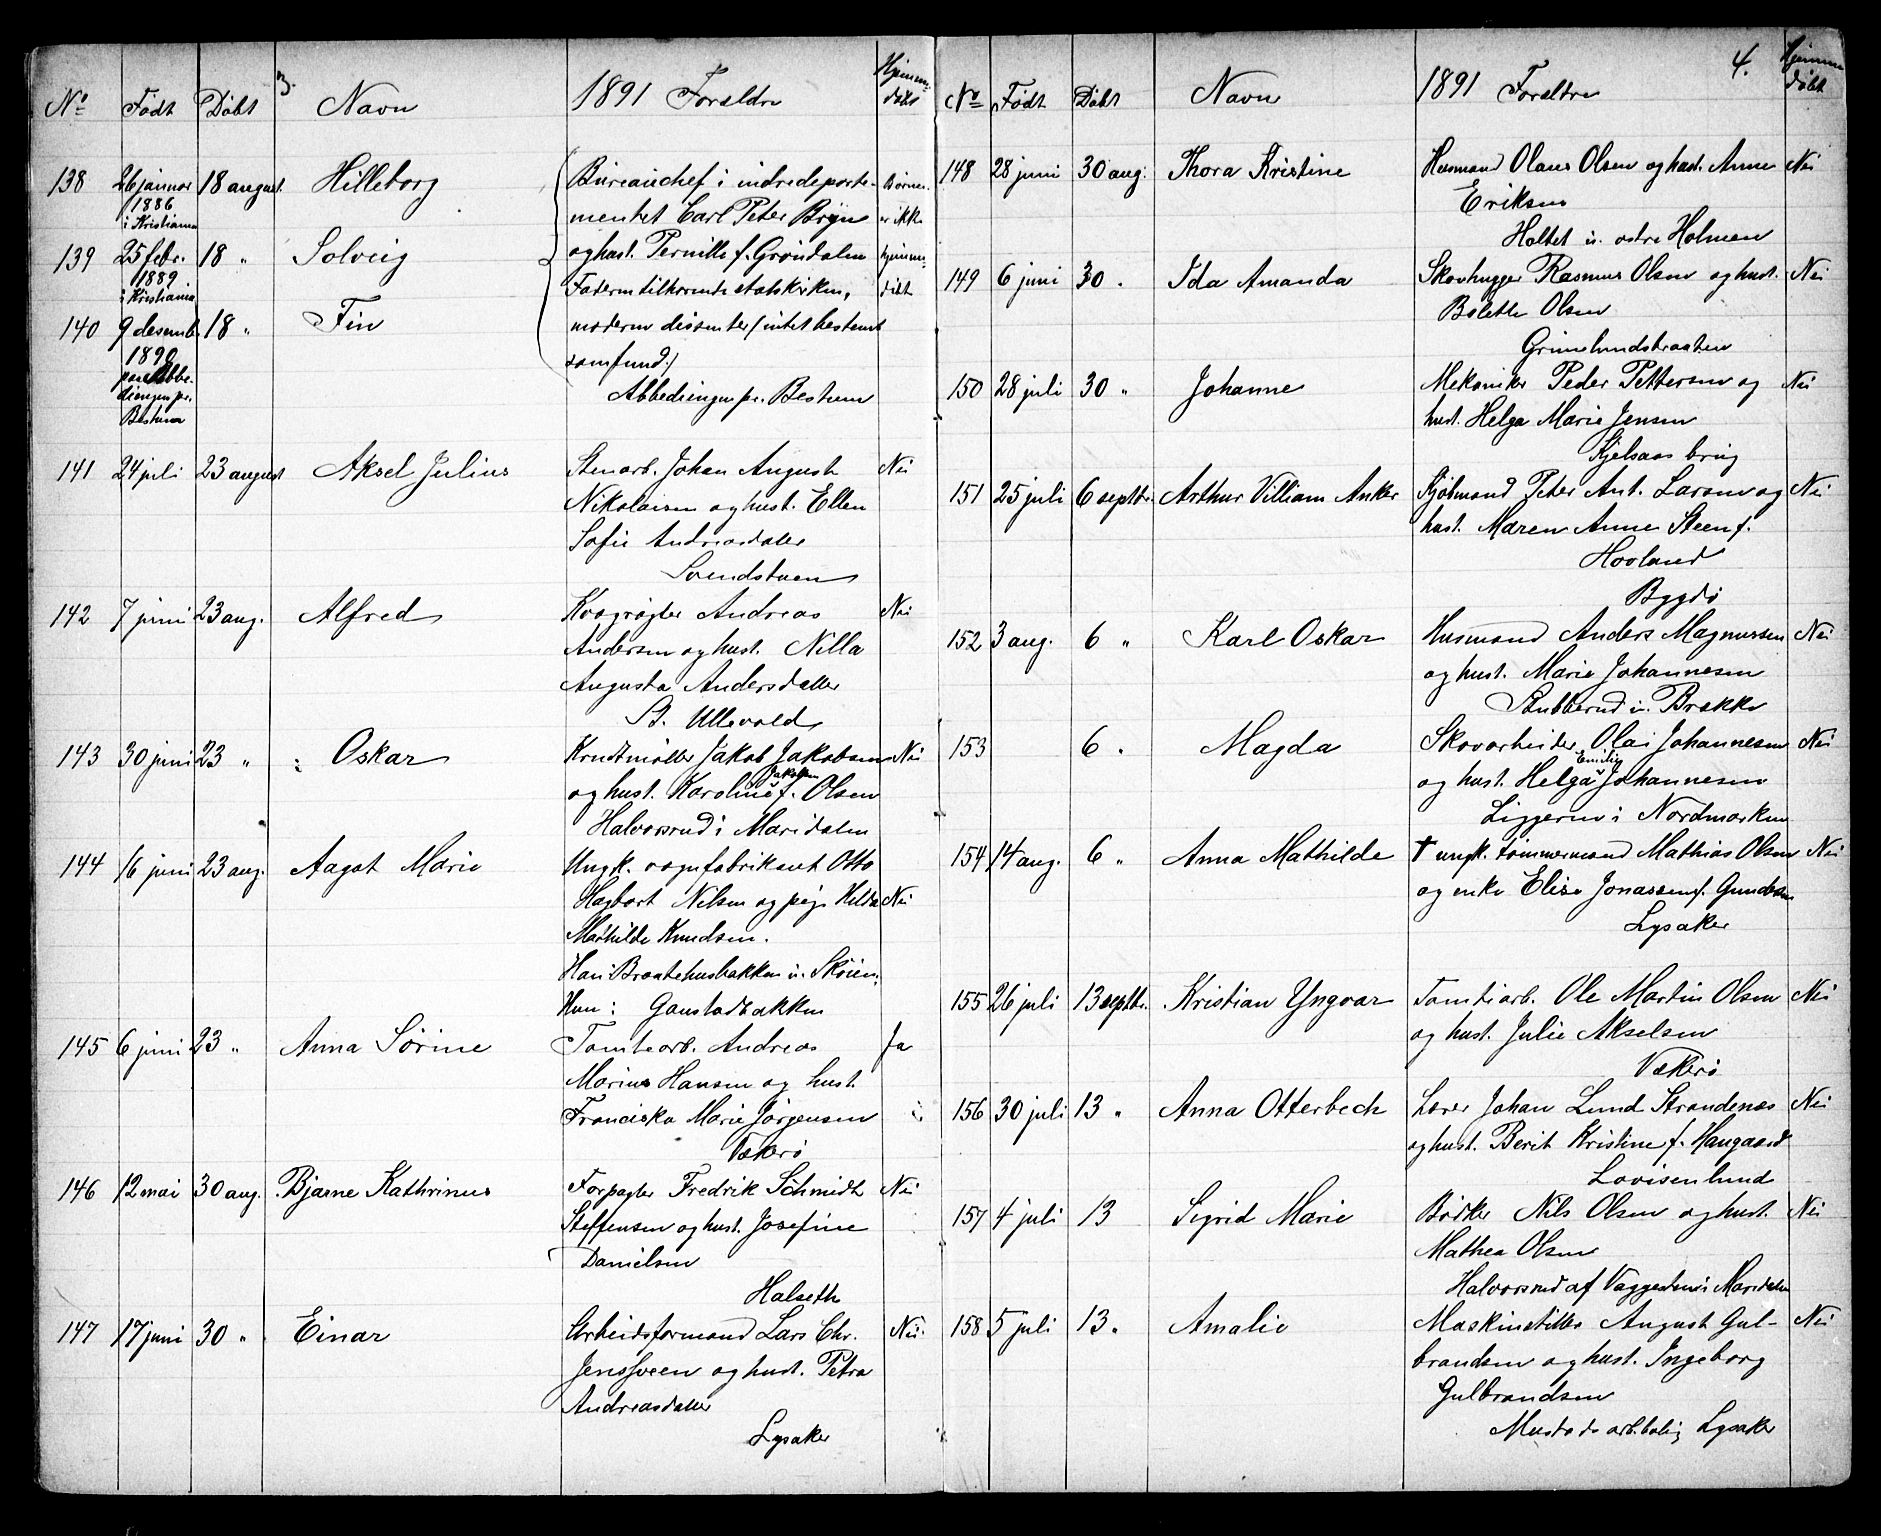 3.
No Født Døbt Navn 1891 Foreldre Hjemmedøbt
138 26 januar 1886 i Kristiania 18 august Hilleborg Bureauchef i indredeparte-
mentet Carl Peter Bryn
139 25 febr. 1889 i Kristiania 18 " Solveig og hust. Pernille f. Grøndalen
Faderen tilhørende statskirken,
140 9 desemb. 1890 paa Abbediengen pr. Bestum 18 " Fin moderen dissenter (intet bestemt
samfund.)
Abbediengen pr. Bestum
Børnene er ikke hjemmedøbt
141 24 juli 23 august Aksel Julius Stenarb. Johan August Nei
Nikolaisen og hust. Ellen
Sofie Andreasdatter
Svendstuen
142 7 juni 23 aug. Alfred Kvægrøgter Andreas Nei
Andersen og hust. Nilla
Augusta Andersdatter
St. Ullevold
143 30 juni 23 " Oskar Krudtmøller Jakob Jakobsen Nei
og hust. Karoline Jakobsen f. Olsen
Halvorsrud i Maridalen
144 16 juni 23 aug. Aagot Marie Ungk. vognfabrikant Otto
Hagbart Nilsen og pige Hilda Nei
Mathilde Knudsen.
Han: Braatehusbakken u. Skøien.
Hun: Gaustadbakken
145 6 juni 23 " Anna Sørine Tomtearb. Andreas Ja
Marius Hansen og hust.
Franciska Marie Jørgensen
Vækerø
146 12 mai 30 aug. Bjarne Kathrinus Forpagter Fredrik Schmidt Nei
Steffensen og hust. Josefine
Danielsen
Halseth
147 17 juni 30 " Einar Arbeidsformand Lars Chr. Nei
Jensveen og hust. Petra
Andreasdatter
Lysaker
4.
No Født Døbt Navn 1891 Foreldre Hjemmedøbt
148 28 juni 30 aug. Thora Kristine Husmand Olaus Olsen og hust. Anne Nei
Eriksen
Holtet u. østre Holmen
149 6 juni 30 " Ida Amanda Skovhugger Rasmus Olsen og hust. Nei
Bolette Olsen
Grimelundsbraaten
150 28 juli 30 " Johanne Mekaniker Peder Pettersen og Nei
hust. Helga Marie Jensen
Kjelsaas brug
151 25 juli 6 septbr. Arthur Villiam Anker Kjøbmand Peter Ant. Larsen og Nei
hust. Maren Anne Steen f.
Hovland
Bygdø
152 3 aug. 6 " Karl Oskar Husmand Anders Magnussen Nei
og hust. Marie Johannesen
Stubberud u. Brekke
153 6 " Magda Skovarbeider Olai Johannesen Nei
og hust. Helga Emilie Johannesen
Liggeren i Nordmarken
154 14 aug. 6 " Anna Mathilde † ungk. tømmermand Mathias Olsen Nei
og enke Elise Jonassen f. Gundersen
Lysaker
155 26 juli 13 septbr. Kristian Yngvar Tomtearb. Ole Martin Olsen Nei
og hust. Julie Akselsen
Vækerø
156 30 juli 13 " Anna Otterbech Lærer Johan Lund Strandenæs Nei
og hust. Berit Kristine f. Haugaard
Lovisenlund
157 4 juli 13 Sigrid Marie Bødker Nils Olsen og hust. Nei
Mathea Olsen
Halvorsrud af Vaggesten i Maridalen
158 5 juli 13 " Amalie Maskinstiller August Gul- Nei
brandsen og hust. Ingeborg
Gulbrandsen
Mustads arb.bolig Lysaker